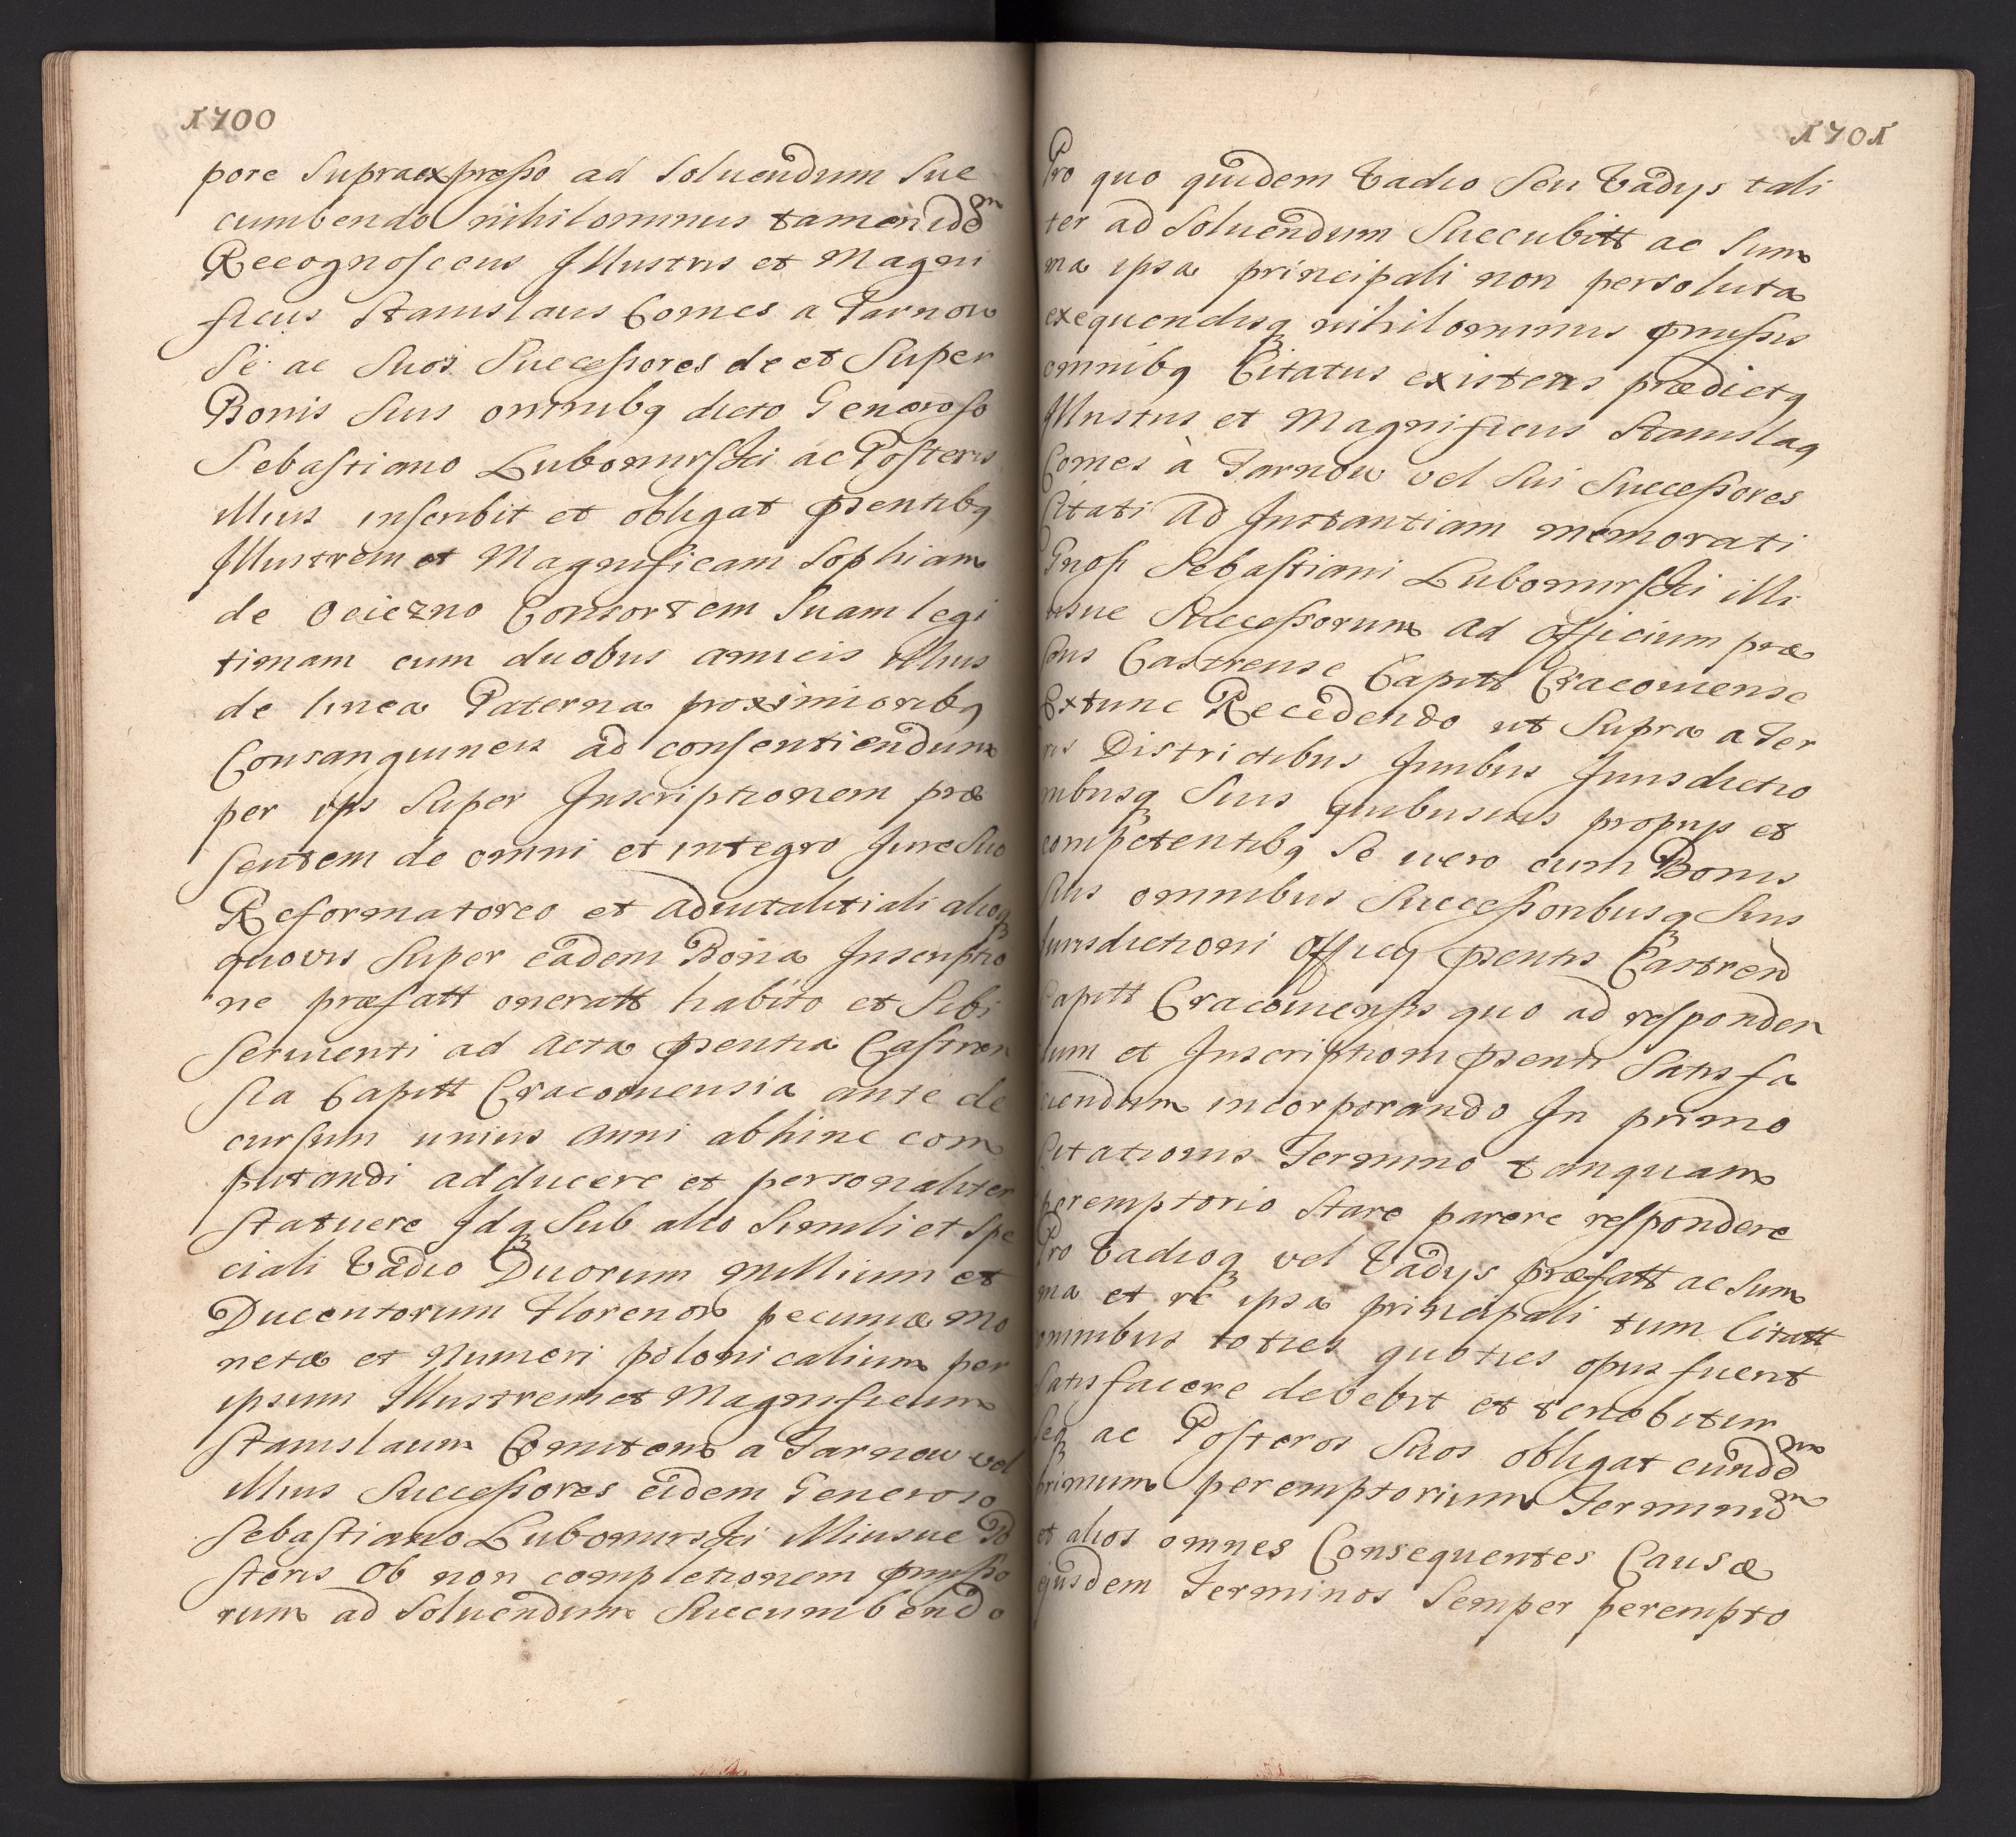 1700
pore Supraexpresso ad Soluendum Suc
cumbendo nihilominus tamen idem
Recognoscens Illustris et Magni
ficus Stanislaus Comes a Tarnow
Se ac Suos Successores de et Super
Bonis Suis omnibq dicto Generoso
Sebastiano Lubomirski ac Posteris
illius inscribit et obligat psentibq
Illustrem et Magnificam Sophiam
de Ocieszno Consortem Suam legi
timam cum duobus amicis illius
de linea Paterna proximioribq
Consanguineis ad consentiendum
per ips Super Inscriptionem præ
sentem de omni et integro Jure Suo
Reformatoreo et aduitalitiali alioq
quovis Super eadem Bona Inscriptio
ne præfatt oneratt habito et Sibi
Seruienti ad Acta psentia Castren
sia Capitt Cracouiensia ante de
cursum unius Anni abhinc com
putandi adducere et personaliter
Statuere Idq Sub alio Simili et Spe
ciali Vadio Duorum Millium et
Ducentorum Florenor pecuniæ mo
netæ et Numeri polonicalium per
ipsum Illustrem et Magnificum
Stanislaum Comitem a Tarnow vel
illius Successores eidem Generoso
Sebastiano Lubomirski illiusue Po
steris Ob non completionem pmisso
rum ad Soluendum Succumbendo
1701
Pro quo quidem Vadio Seu Vadys tali
ter ad Soluendum Succubitt ac Sum
ma ipsa principali non persoluta
exequendisq nihilominus pmissis
omnibq Citatus existens prædictq
Illustris et Magnificus Stanislaq
Comes à Tarnow vel Sui Successores
Citati Ad Instantiam memorati
Gnosi Sebastiani Lubomirski illi
usue Successorum Ad Officium præ
sens Castrense Capitt Cracouiense
Extunc Recedendo ut Supra a Ter
ris Districtibus Juribus Jurisdictio
nibusq Suis quibusuis proprijs et
competentibq Se uero cum Bonis
Suis omnibus Successoribusq Suis
Jurisdictioni Officij psentis Castren
Capitt Cracouiensis quo ad responden
dum et Inscriptioni psenti Satisfa
ciendum incorporando In primo
Citationis Termino tanquam
peremptorio Stare parere respondere
Pro Vadioq vel Vadys præfatt ac Sum
ma et re ipsa principali tum Citatt
omnibus toties quoties opus fuerit
Satisfacere debebit et tenebitur
Seq ac Posteros Suos obligat eundem
primum peremptorium Terminum
et alios omnes Consequentes Causæ
ejusdem Terminos Semper perempto